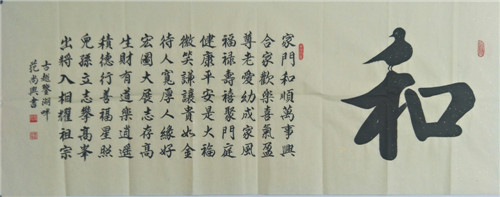 和
家門和順萬事興
合家歡樂喜氣盈
尊老愛幼成家風
福祿壽禧聚門庭
健康平安是大福
微笑謙讓貴如金
待人寬厚人緣好
宏圖大展志存高
生財有道樂逍遥
積德行善福星照
兒孫立志攀高峯
出將入相耀祖宗
古越鑒湖畔
范尚興書